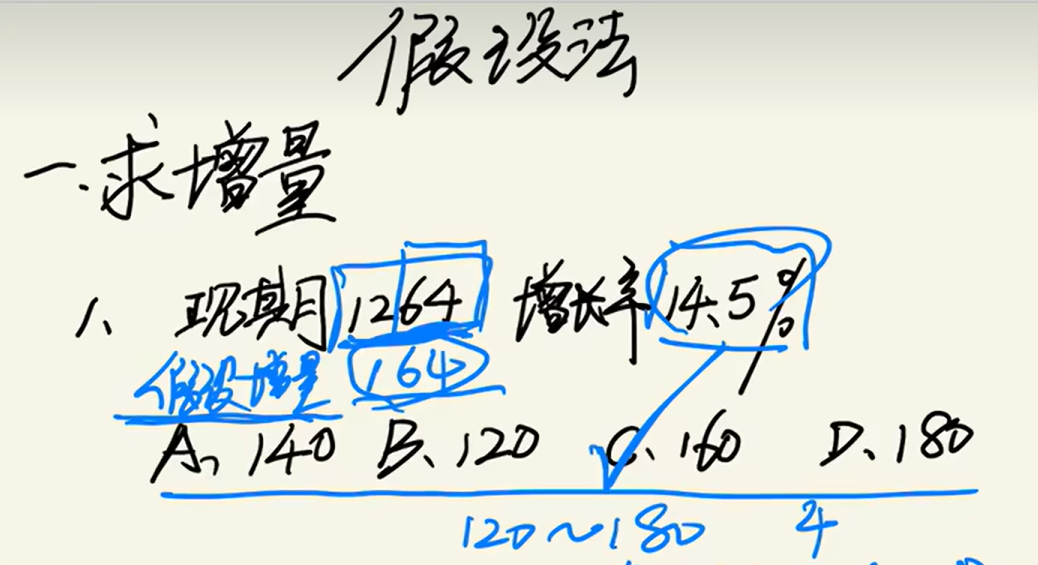 假设法
一.求增量
1、现期1264 增长率14.5%
假设增量 164
A、140 B、120 C、160 D、180
120~180